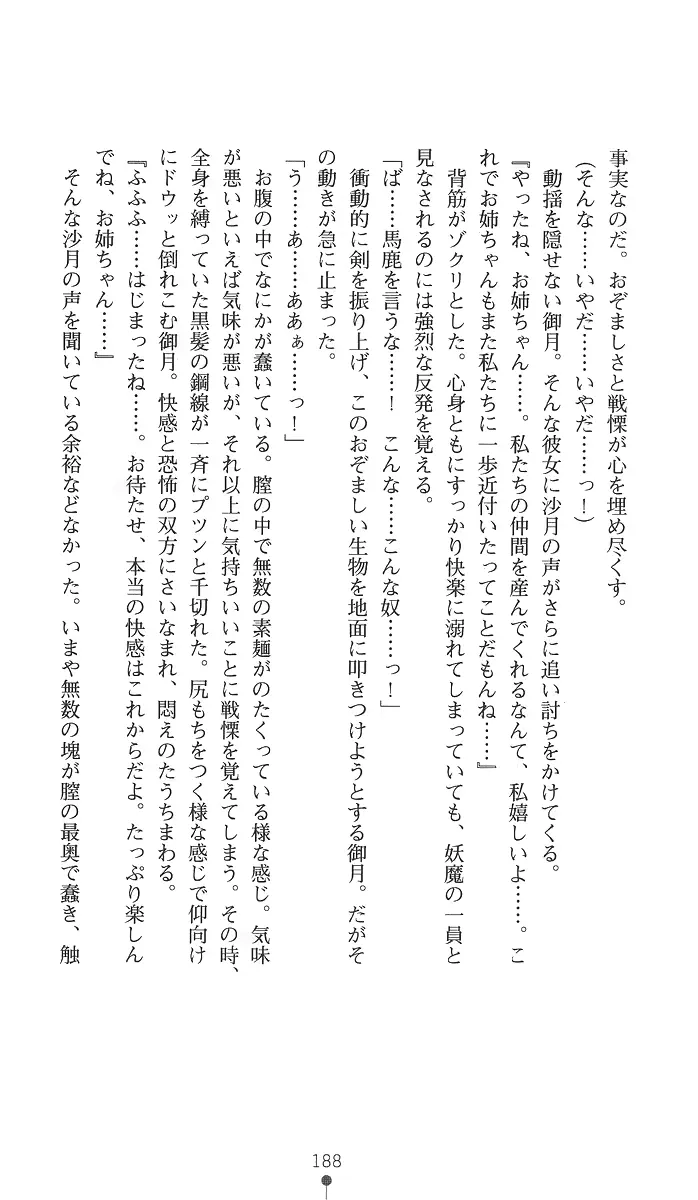 事実なのだ。おぞましさと戦慄が心を埋め尽くす。
（そんな……いやだ……いやだ……っ！）
動揺を隠せない御月。そんな彼女に沙月の声がさらに追い討ちをかけてくる。
『やったね、お姉ちゃん……。私たちの仲間を産んでくれるなんて、私嬉しいよ……。こ
れでお姉ちゃんもまた私たちに一歩近付いたってことだもんね……』
背筋がゾクリとした。心身ともにすっかり快楽に溺れてしまっていても、妖魔の一員と
見なされるのには強烈な反発を覚える。
「ば……馬鹿を言うな……！　こんな……こんな奴……っ！」
衝動的に剣を振り上げ、このおぞましい生物を地面に叩きつけようとする御月。だがそ
の動きが急に止まった。
「う……あ……ああぁ……っ！」
お腹の中でなにかが蠢いている。膣の中で無数の素麺がのたくっている様な感じ。気味
が悪いといえば気味が悪いが、それ以上に気持ちいいことに戦慄を覚えてしまう。その時、
全身を縛っていた黒髪の鋼線が一斉にプツンと千切れた。尻もちをつく様な感じで仰向け
にドウッと倒れこむ御月。快感と恐怖の双方にさいなまれ、悶えのたうちまわる。
『ふふふ……はじまったね……。お待たせ、本当の快感はこれからだよ。たっぷり楽しん
でね、お姉ちゃん……』
そんな沙月の声を聞いている余裕などなかった。いまや無数の塊が膣の最奥で蠢き、触
188